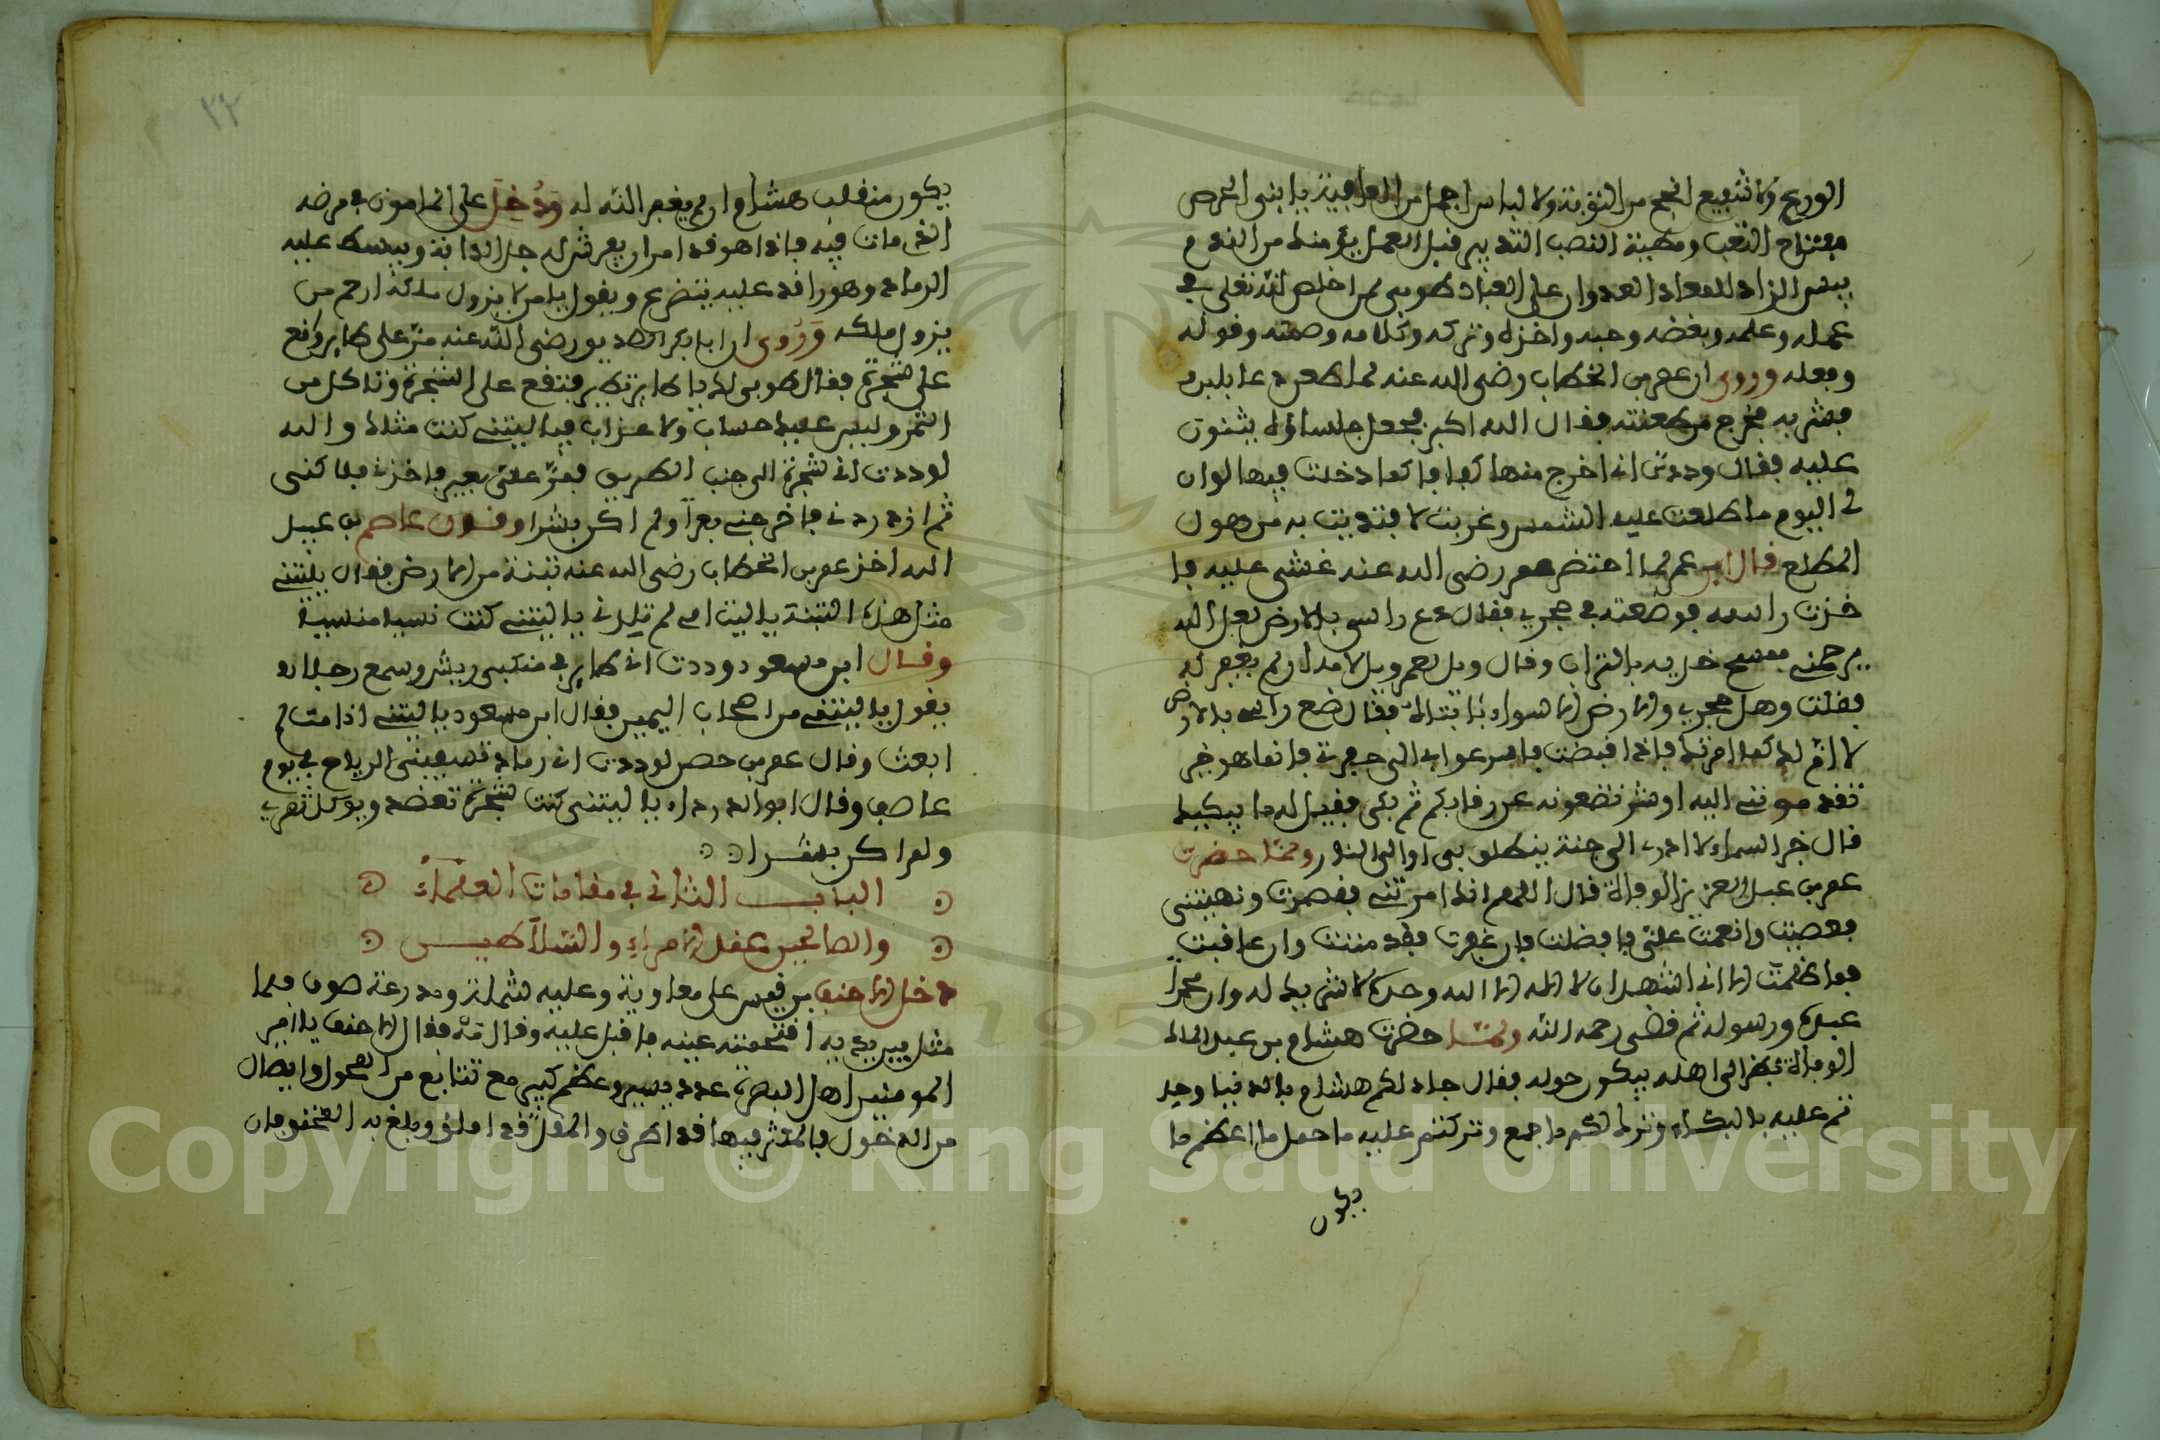 الورع ولا شفيع انجح من التوبة ولا لباس اجمل من العافية يا بني الحرص
مفتاح التعب ومطية النصب التدبير قبل العمل يؤمنك من الندم
بيس الزاد للمعاد العدوان على العباد طوبى لمن اخلص لله تعلى في
عمله وعلمه وبغضه وحبه واخذه وتركه وكلامه وصمته وقوله
وفعله وروي ان عمر بن الخطاب رضى الله عنه لما طعن دعا بلبن
فشربه فخرج من طعنته فقال الله اكبر فجعل جلساؤه يثنون
عليه فقال وددت اني اخرج منها كفافا كما دخلت فيها لو ان
لي اليوم ما طلعت عليه الشمس وغربت لافتديت به من هول
المطلع قال ابن عمر لما احتضر عمر رضى الله عنه غشي عليه فا
خذت راسه فوضعته في حجري فقال دع راسي بالارض لعل الله
يرحمني فمسح خديه بالتراب وقال ويل لعمر ويل لامه ان لم يغفر له
فقلت وهل حجري والارض الا سواء يا ابتاه فقال ضع راسي بالارض
لا ام لك كما امرتك فاذا قبضت فاسرعوا بي الى حفرتي فانما هو خير
تقدموني اليه او شر تضعونه عن رقابكم ثم بكى فقيل له ما يبكيك
قال خبر السماء لا ادري الى جنة ينطلق بي او الى النار ولما حضرت
عمر بن عبد العزيز الوفاة قال اللهم انك امرتني فقصرت ونهيتني
فعصيت وانعمت علي فافضلت فان غفرت فقد مننت وان عاقبت
فما ظلمت الا اني اشهد ان لا اله الا الله وحده لا شريك له وان محمدا
عبده ورسوله ثم قضى رحمه الله ولما حضرت هشام بن عبد الملك
الوفاة نظر الى اهله يبكون حوله فقال جاد لكم هشام بالدنيا وجد
تم عليه بالبكاء وترك لكم ما جمع وتركتم عليه ما حمل ما اعظم ما
يكون
٣٢
يكون منقلب هشام ان لم يغفر الله له ودخل على المامون في مرضه
الذي مات فيه فاذا هو قد امر ان يفرش له جل الدابة ويبسط عليه
الرماد وهو راقد عليه يتضرع ويقول يا من لا يزول ملكه ارحم من
يزول ملكه وروي ان ابا بكر الصديق رضى الله عنه مر على طاير وقع
على شجرة فقال طوبى لك يا طاير تطير فتقع على الشجرة وتاكل من
الثمر وليس عليك حساب ولا عذاب فيا ليتني كنت مثلك والله
لوددت اني شجرة الى جنب الطريق فمر علي بعير فاخذني فلاكني
ثم ازدردني فاخرجني بعرا ولم اكن بشرا وقال عاصم بن عبيد
الله اخذ عمر بن الخطاب رضى الله عنه تبنة من الارض فقال يليتني
مثل هذه التبنة يا ليت امي لم تلدني يا ليتني كنت نسيا منسيا
وقال ابن مسعود وددت اني طاير في منكبي ريش وسمع رجلا
يقول يا ليتني من اصحاب اليمين فقال ابن مسعود يا ليتني اذا مت لم
ابعث وقال عمر بن حصن لوددت اني رماد تسفيني الرياح في يوم
عاصف وقال ابو الدرداء يا ليتني كنت شجرة تعضد ويوكل ثمري
ولم اكن بشرا
الباب الثاني في مقامات العلماء
والصالحين عند الامراء والسلاطين
دخل الاحنف بن قيس على معاوية وعليه شملة ومدرعة صوف فلما
مثل بين يديه اقتحمته عينه فاقبل عليه وقال مه فقال الاحنف يا امير
المومنين اهل البصرة عدد يسير وعظم كسير مع تتابع من المحول واتصال
من الدخول فالمكثر فيها قد اطرق والمقل قد املق وبلغ به المخنق فان